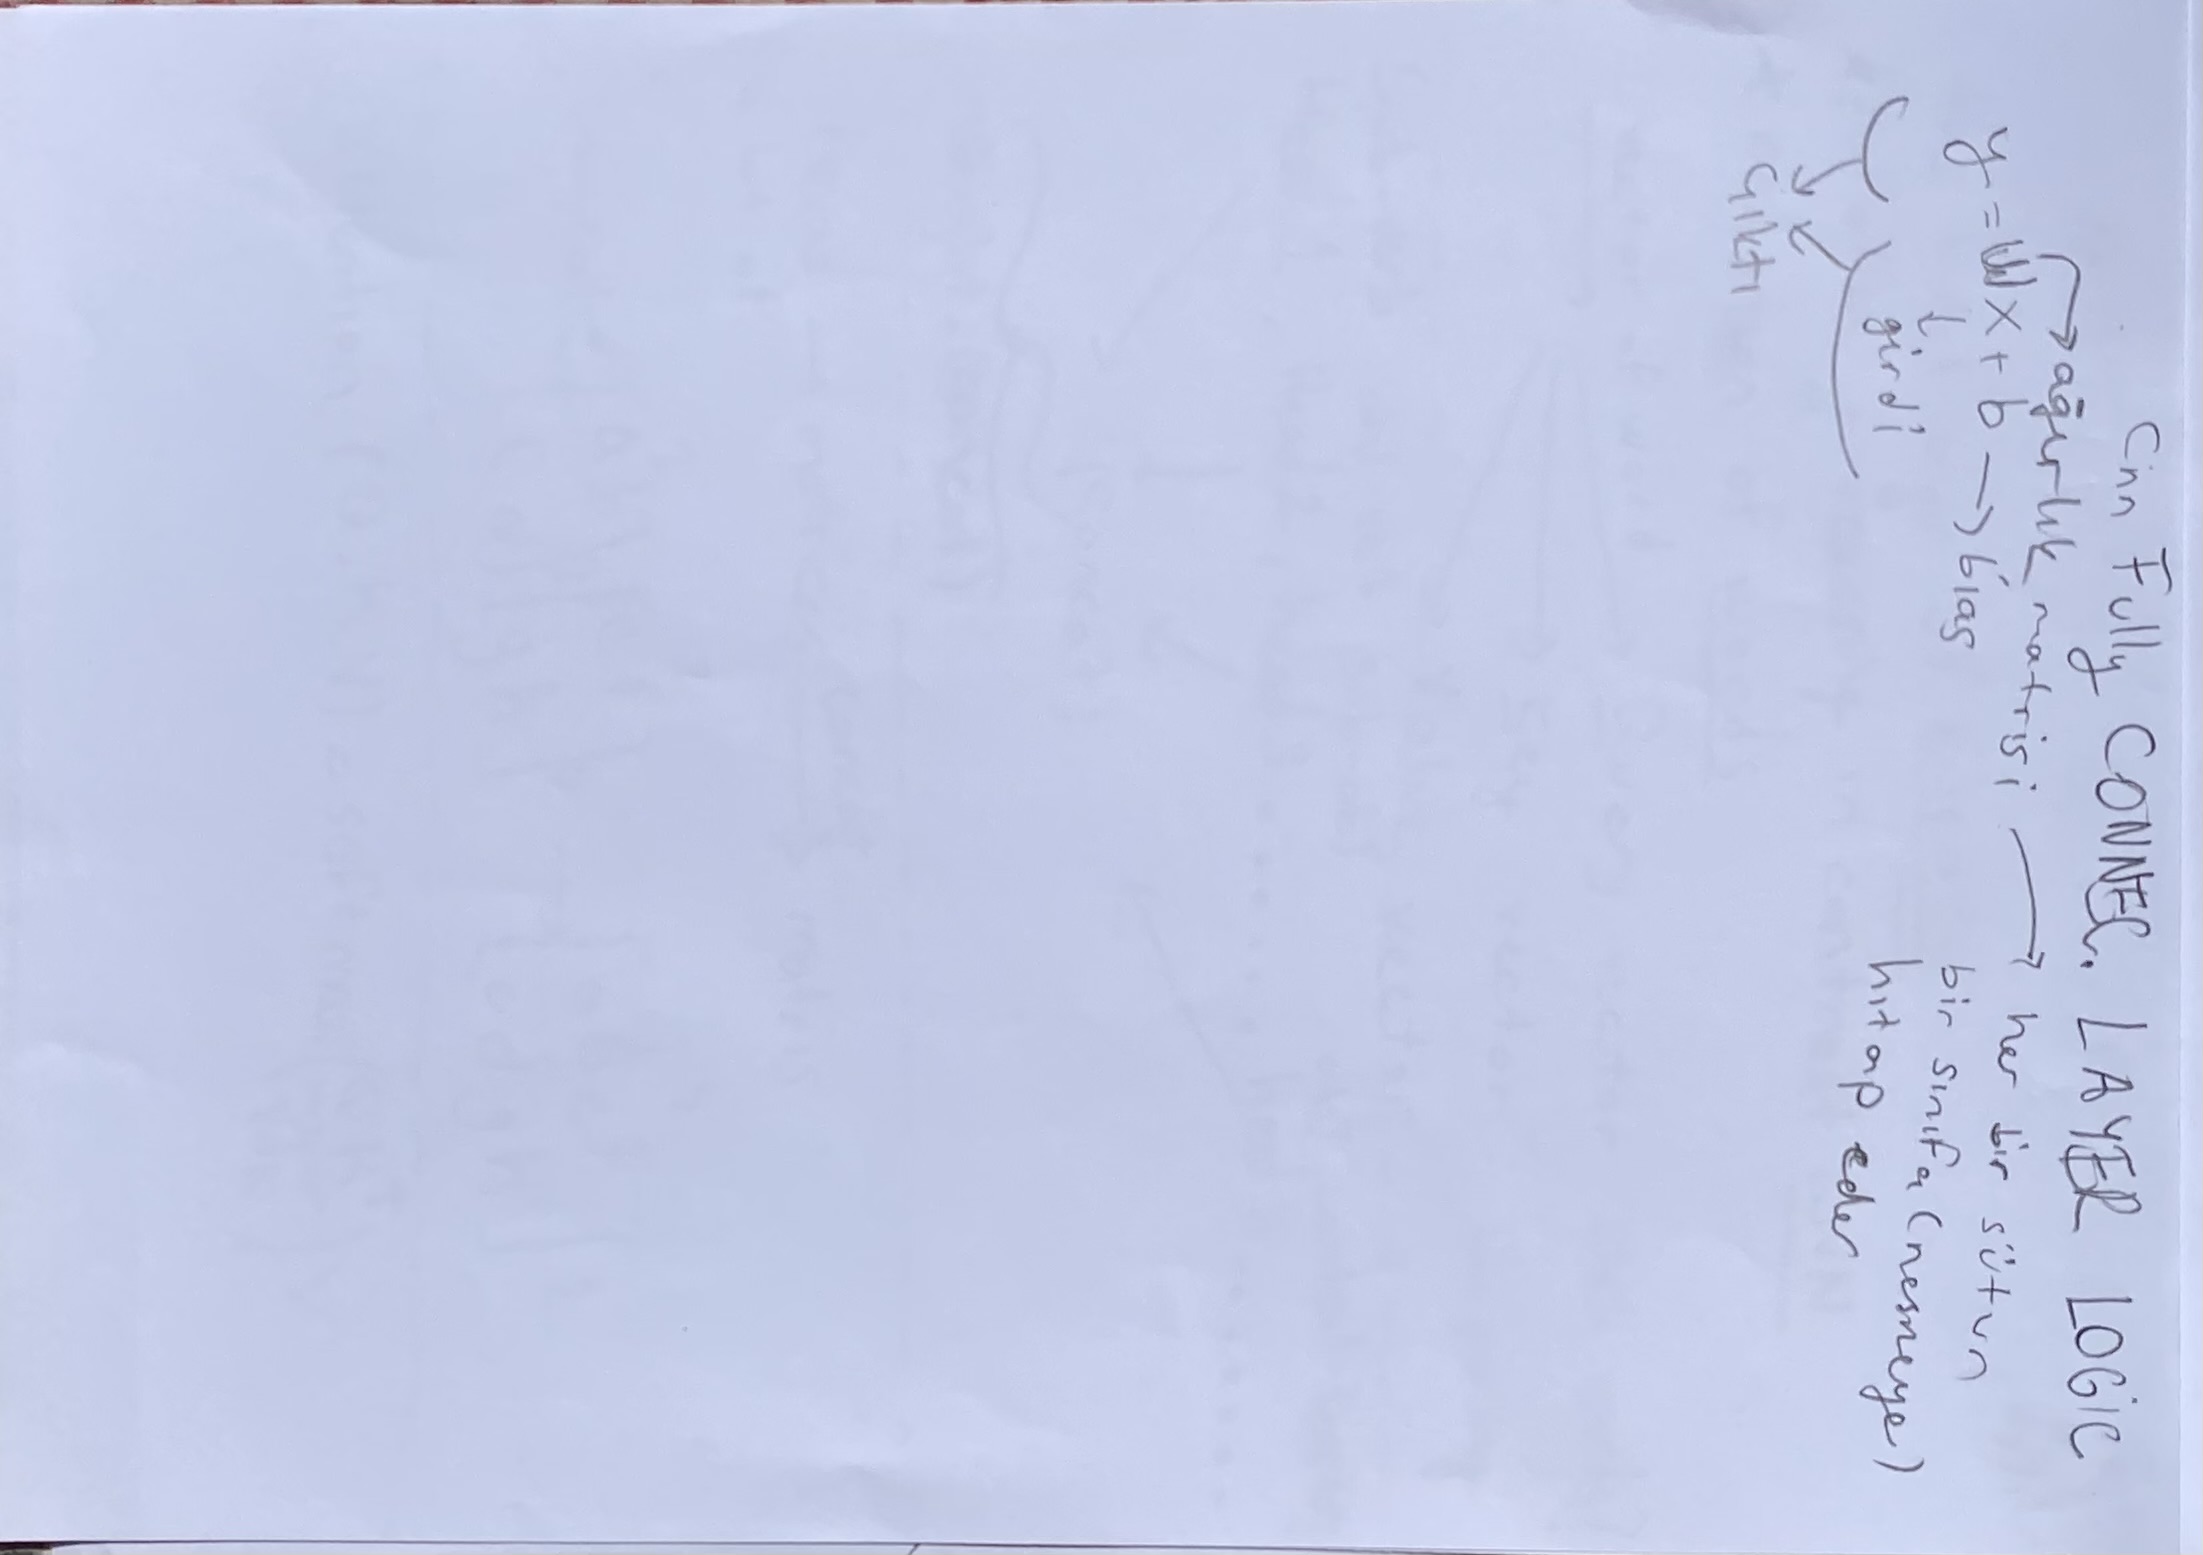 Cnn Fully CONNEC. LAYER LOGiC
ağırlık matrisi → her bir sütun
bir sınıfa (nesneye)
hitap eder
y = Wx + b → bias
↓
girdi
Çıktı